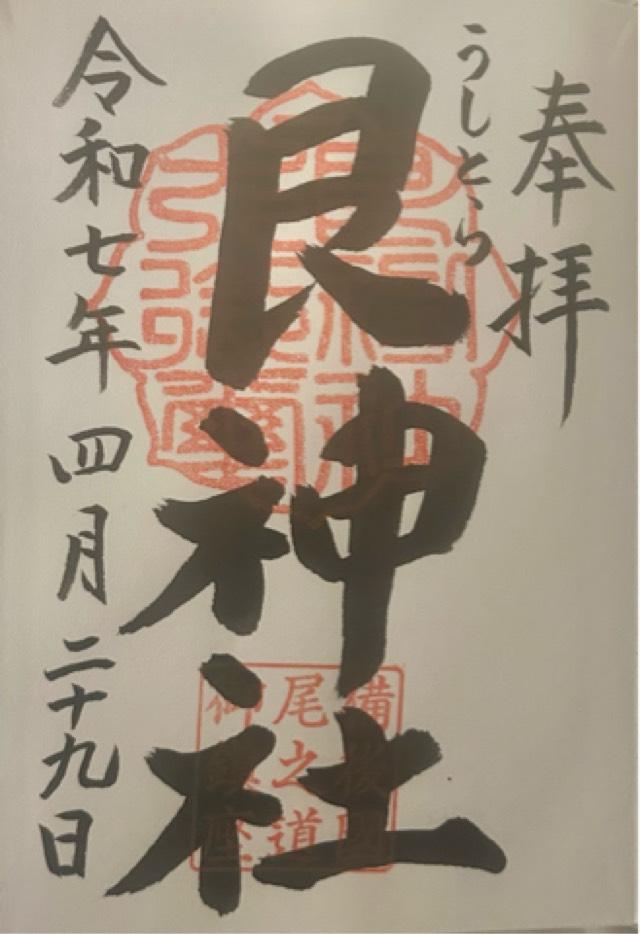 奉拝
うしとら
艮神社
令和七年四月二十九日
備後國
尾之道
御鎮座